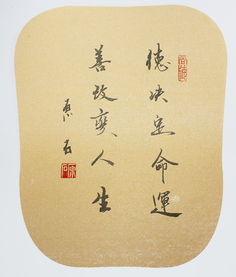 德决定命運
善改變人生